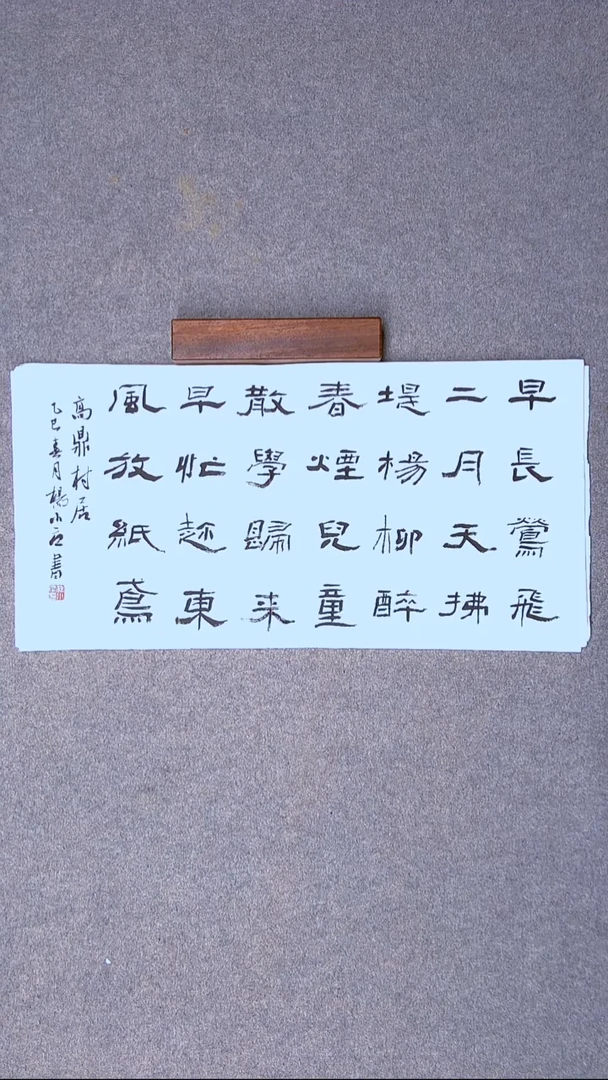 早長鶯飛
二月天拂
堤楊柳醉
春煙兒童
散學歸来
早忙趂東
風放紙鳶
高鼎村居
乙巳春月楊小書